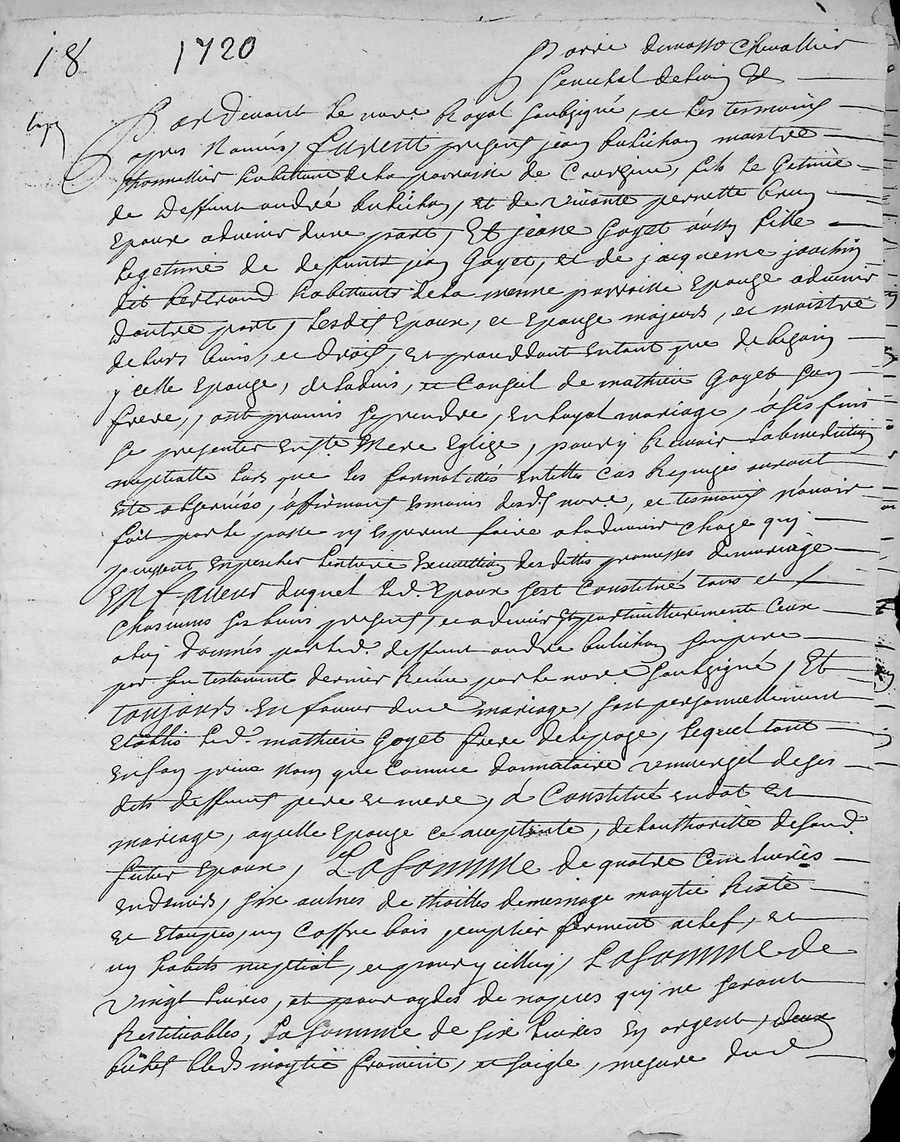 18 1720
Chevallier
Senechal
Par Devant Le nore Royal soubsigné, et Les tesmoins
apres Només, furent presens jean bulichon maistre
habittant de la parroisse de Courzieu, fils Legetime
de Deffunt andré bulichon, et de vivante pernette
Epoux advenir dune part, Et jeane Goyet aussy fille
Legetime de deffunts jean Goyet, et de jaqueme joachin
dit bertrand habittante de la menne parroisse Epouze advenir
Dautre part, Lesdts Epoux, et Epouze majeurs, et maistre
de Leurs biens, et droits, et procedant Entant que de bezoin
ycelle Epouze, de Ladvis, et Conseil de mathieu Goyet son
frere, ont promis se prendre, en Loyal mariage, a ses fins
se presenter En ste Mere Eglize, pour y Recevoir La benediction
nuptialle Lors que Les formalittés En telles Cas Requizes auront
este observées, affirmans Es mains dudt nore, et tesmoins n'avoir
fait par le passe ny Esperent faire a Ladvenir Choze quy
puissent Enpescher Lentiere Executtion desdittes promesses de mariage
En faveur duquel Led Epoux sest Constitué tous et
Chascuns ses biens presens, et advenir Et particullierement Ceux
a luy donnés par led deffunt andre bulichon son pere
par son testament dernier Receu par le nore soubsigné, Et
toujours En faveur dud mariage, sest personnellement
Etably Led mathieu Goyet frere de Lepouze, Lequel tant
En son prive Nom que Comme donnataire unniverzel de ses
dits deffunts pere et mere, a Constitué en dot et
mariage, a quelle Epouze ce acceptante, de Lauthoritte de sond
futur Epoux, La Somme de quatre Cent Livres
En deniers, six aulnes de thoilles de mesnage moytie Rista
et Etoupes, un Coffre bois peuplier ferment a clef, et
un habits nuptial, et pour yceluy, La Somme de
vingt Livres, et pour aydes de nopces quy ne seront
Restituables, La Somme de six Livres En argent, deux
bichets bleds moytie froment, et soigle, mezure dud